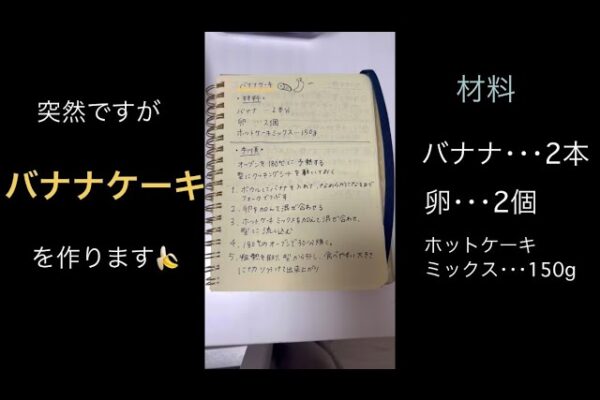 突然ですが
バナナケーキ
を作ります🍌
バナナケーキ
・材料・
バナナ…2本分
卵…2個
ホットケーキミックス…150g
・手順・
オーブンを180℃に予熱する
型にクッキングシートを敷いておく
1. ボウルにバナナを入れて、なめらかになるまで
フォークでつぶす
2. 卵を加えて混ぜ合わせる
3. ホットケーキミックスを加えて混ぜ合わせ、
型に流し込む
4. 180℃のオーブンで30分焼く。
5. 粗熱を取り、型から外し、食べやすい大きさ
に切り分けて出来上がり
材料
バナナ･･･2本
卵･･･2個
ホットケーキ
ミックス･･･150g